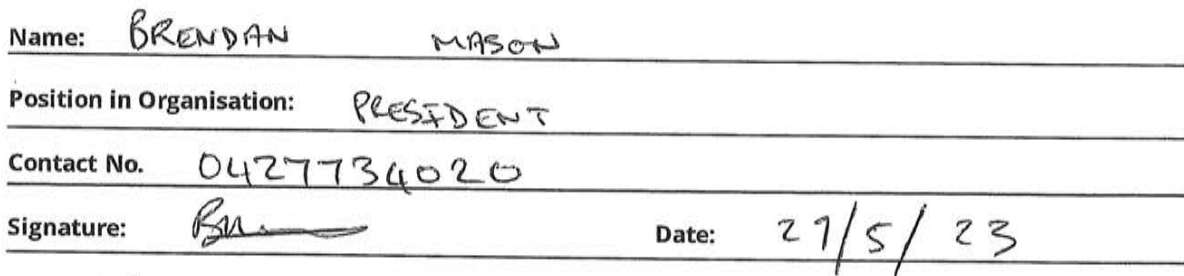 Name: BRENDAN MASON
Position in Organisation: PRESIDENT
Contact No. 0427734020
Signature:
Date: 27/5/23